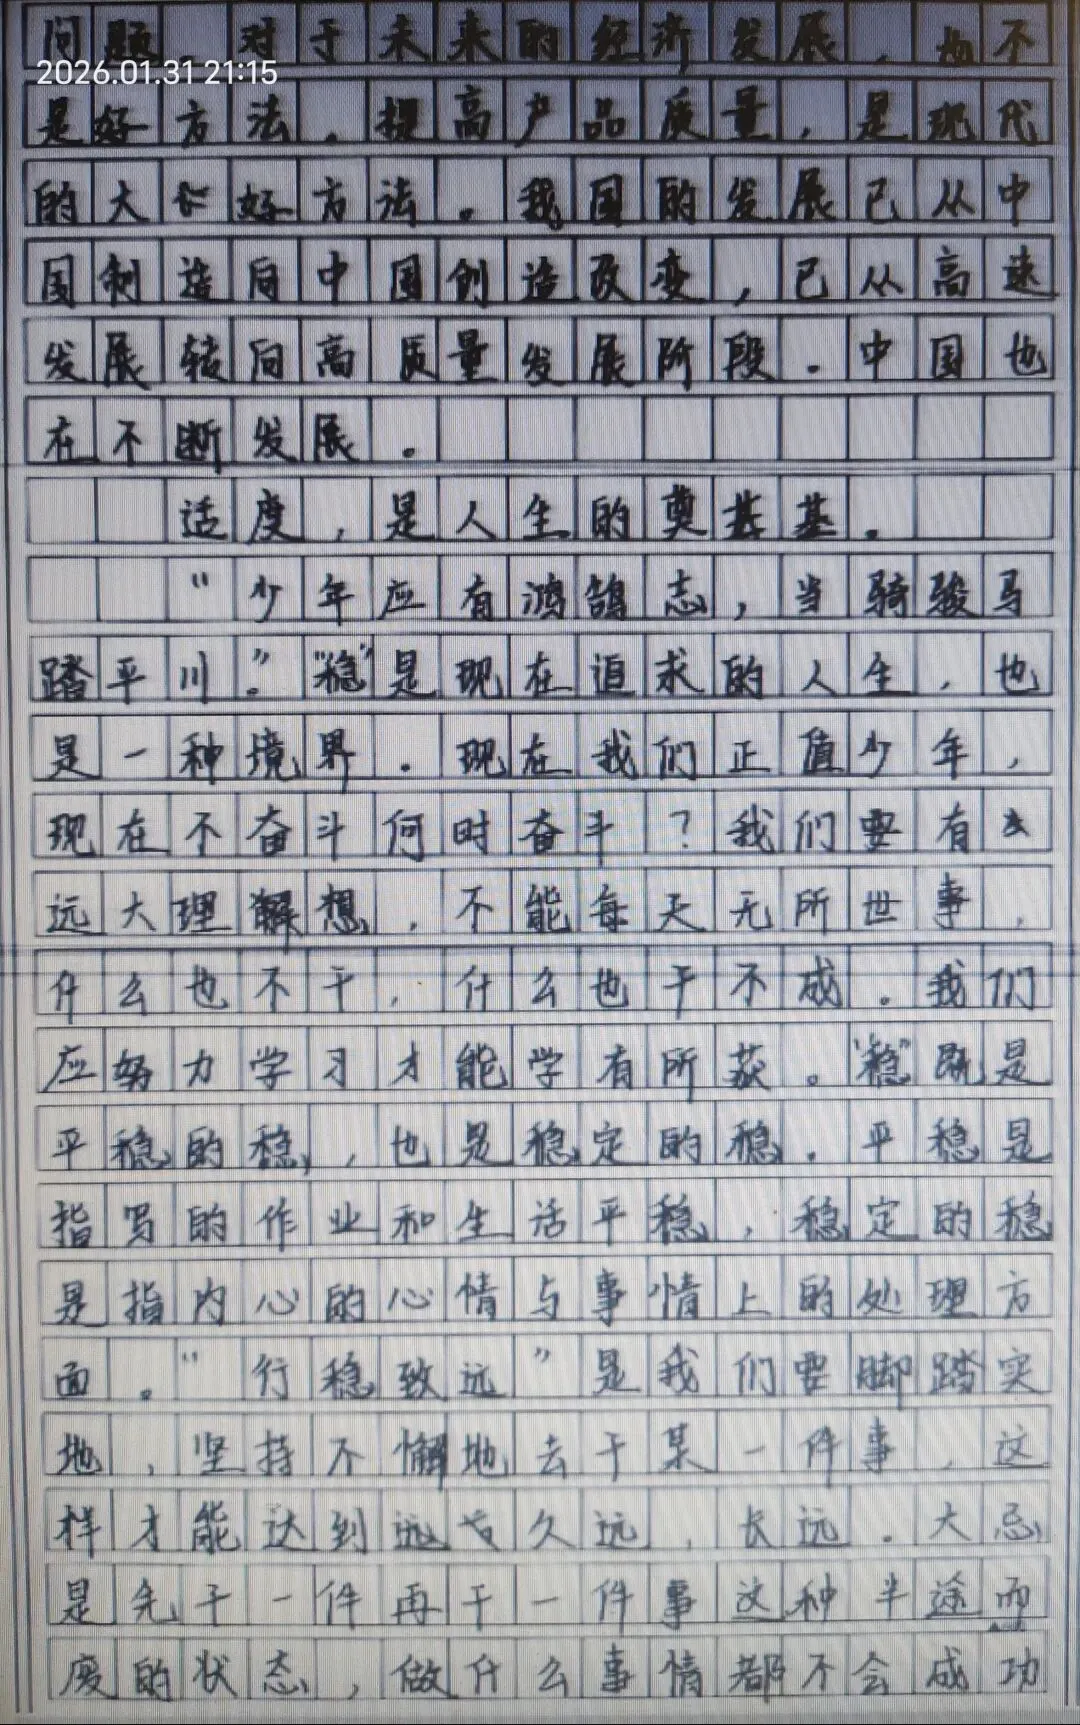 问题，对于未来的经济发展，也不
2026.01.31 21:15
是好方法，提高产品质量，是现代
的大好方法。我国的发展已从中
国制造向中国创造改变，已从高速
发展转向高质量发展阶段。中国也
在不断发展。
适度，是人生的奠基。
“少年应有鸿鹄志，当骑骏马
踏平川。”“稳”是现在追求的人生，也
是一种境界。现在我们正值少年，
现在不奋斗何时奋斗？我们要有
远大理想，不能每天无所世事，
什么也不干，什么也干不成。我们
应努力学习才能学有所获。“稳”既是
平稳的稳，也是稳定的稳。平稳是
指写的作业和生活平稳，稳定的稳
是指内心的心情与事情上的处理方
面。“行稳致远”是我们要脚踏实
地，坚持不懈地去干某一件事，这
样才能达到久远，长远。大忌
是先干一件再干一件事这种半途而
废的状态，做什么事情都不会成功